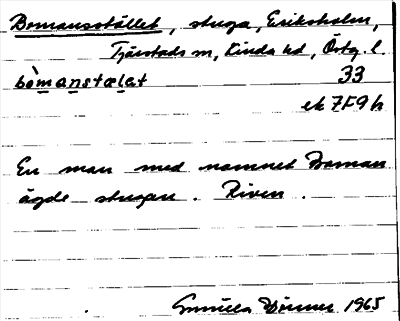 Bomansstället, stuga, Eriksholm,
Tjärstads sn, Kinda hd, Östg. l.
bòmanstælat 33
ek 7F9h
En man med namnet Boman
ägde stugan. Riven.
Gunilla 1965